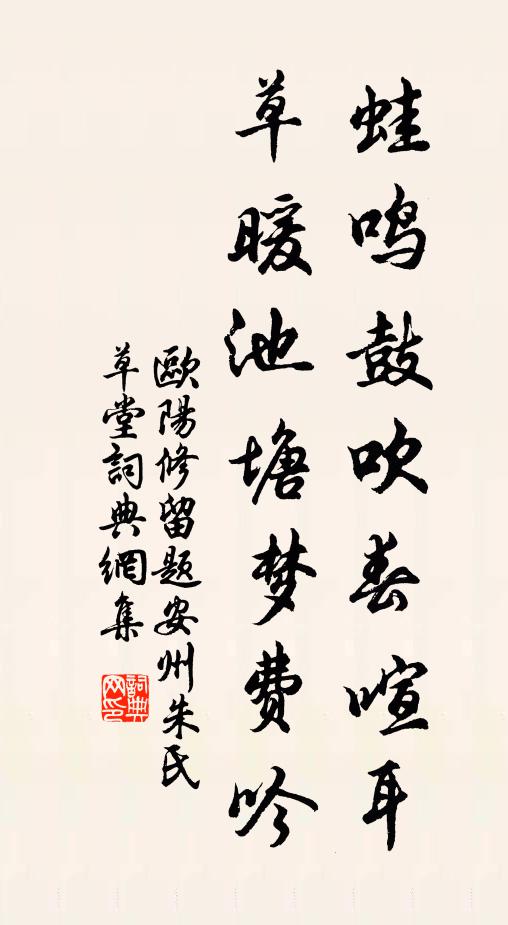 蛙鸣鼓吹春喧耳
草暖池塘梦费吟
歐陽修留题安州朱氏
草堂詞典網集
詞典网印